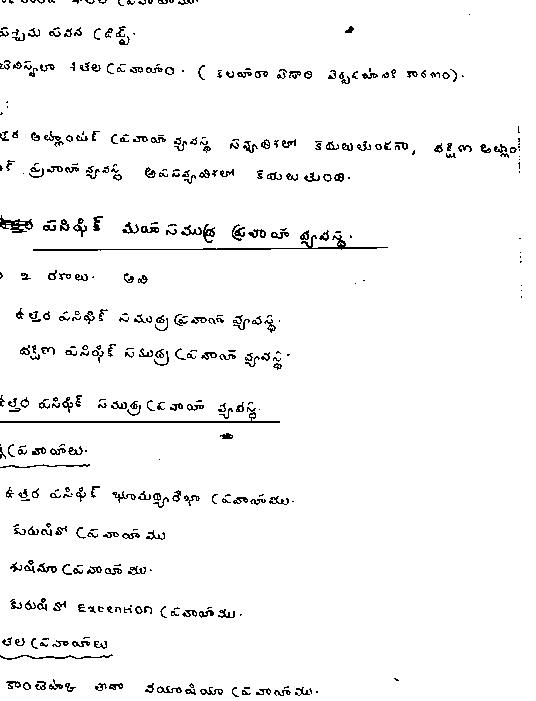 పశ్చిమ పవన డ్రిఫ్ట్.
శీతల ప్రవాహం. ( కలహారి ఎడారి ఏర్పడటానికి కారణం).
అట్లాంటిక్ ప్రవాహ వ్యవస్థ సవ్యదిశలో కదులుతుండగా, దక్షిణ అట్లాం
ప్రవాహ వ్యవస్థ అపసవ్యదిశలో కదులుతుంది.
పసిఫిక్ మహా సముద్ర ప్రవాహ వ్యవస్థ.
2 రకాలు. అవి
ఉత్తర పసిఫిక్ సముద్ర ప్రవాహ వ్యవస్థ.
దక్షిణ పసిఫిక్ సముద్ర ప్రవాహ వ్యవస్థ.
ఉత్తర పసిఫిక్ సముద్ర ప్రవాహ వ్యవస్థ.
ప్రవాహాలు.
ఉత్తర పసిఫిక్ భూమధ్యరేఖా ప్రవాహము.
కురుషివో ప్రవాహము
శుషిమా ప్రవాహము.
కురుషివో Extention ప్రవాహము.
తల ప్రవాహాలు
లేదా ప్రవాహము.